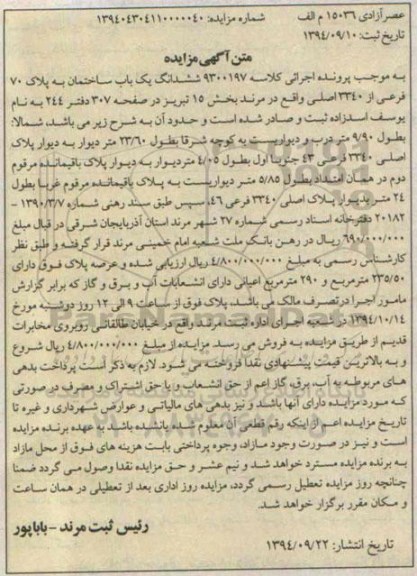 عصر آزادی ۱۵۰۳۶ م الف شماره مزایده: ۱۳۹۴۰۴۳۰۴۱۱۰۰۰۰۰۴۰
تاریخ ثبت: ۱۳۹۴/۰۹/۱۰
متن آگهی مزایده
به موجب پرونده اجرائی کلاسه ۹۳۰۰۱۹۷ ششدانگ یک باب ساختمان به پلاک ۷۰
فرعی از ۳۳۴۰ اصلی واقع در مرند بخش ۱۵ تبریز در صفحه ۳۰۷ دفتر ۲۴۴ به نام
یوسف اسدزاده ثبت و صادر شده است و حدود آن به شرح زیر می باشد، شمالا:
بطول ۹/۹۰ متر درب و دیواریست به کوچه شرقا بطول ۲۳/۶۰ متر دیوار به دیوار پلاک
اصلی ۳۳۴۰ فرعی ۴۳ جنوبا اول بطول ۴/۰۵ متر دیوار به دیوار پلاک باقیمانده مرقوم
دوم در همان امتداد بطول ۵/۸۵ متر دیواریست به پلاک باقیمانده مرقوم غربا بطول
۲۴ متر بدیوار پلاک اصلی ۳۳۴۰ فرعی ۴۶، سپس طبق سند رهنی شماره ۱۳۹۰/۳/۷ -
۲۰۱۸۲ دفترخانه اسناد رسمی شماره ۲۷ شهر مرند استان آذربایجان شرقی در قبال مبلغ
۶۹۰/۰۰۰/۰۰۰ ریال در رهن بانک ملت شعبه امام خمینی مرند قرار گرفته و طبق نظر
کارشناس رسمی به مبلغ ۴/۸۰۰/۰۰۰/۰۰۰ ریال ارزیابی شده و عرصه پلاک فوق دارای
۲۳۵/۵۰ مترمربع و ۲۹۰ مترمربع اعیانی دارای انشعابات آب و برق و گاز که برابر گزارش
مامور اجرا در تصرف مالک می باشد، پلاک فوق از ساعت ۹ الی ۱۲ روز دوشنبه مورخ
۱۳۹۴/۱۰/۱۴ در شعبه اجرای اداره ثبت مرند واقع در خیابان طالقانی روبروی مخابرات
قدیم از طریق مزایده به فروش می رسد. مزایده از مبلغ ۴/۸۰۰/۰۰۰/۰۰۰ ریال شروع
و به بالاترین قیمت پیشنهادی نقدا فروخته می شود. لازم به ذکر است پرداخت بدهی
های مربوطه به آب، برق، گاز اعم از حق انشعاب و یا حق اشتراک و مصرف در صورتی
که مورد مزایده دارای آنها باشد و نیز بدهی های مالیاتی و عوارض شهرداری و غیره تا
تاریخ مزایده اعم از اینکه رقم قطعی آن معلوم شده یا نشده باشد به عهده برنده مزایده
است و نیز در صورت وجود مازاد، وجوه پرداختی بابت هزینه های فوق از محل مازاد
به برنده مزایده مسترد خواهد شد و نیم عشر و حق مزایده نقدا وصول می گردد ضمنا
چنانچه روز مزایده تعطیل رسمی گردد، مزایده روز اداری بعد از تعطیلی در همان ساعت
و مکان مقرر برگزار خواهد شد.
رئیس ثبت مرند - باباپور
تاریخ انتشار: ۱۳۹۴/۰۹/۲۲
ParsNamadData